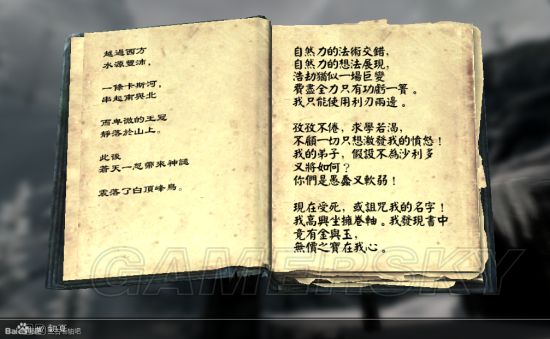 越過西方
水源豐沛，
一條卡斯河，
串起南與北
而卑微的王冠
靜落於山上。
此後
蒼天一怒帶來神謎
震落了白頂峰鳥。
自然力的法術交錯，
自然力的想法展現，
浩劫猶似一場巨變
費盡全力只有功虧一簣。
我只能使用利刃兩邊。
孜孜不倦，求學若渴，
不顧一切只想激發我的憤怒！
我的弟子，假設不為沙利多
又將如何？
你們是愚蠢又軟弱！
現在受死，或詛咒我的名字！
我高興坐擁卷軸。我發現書中
竟有金與玉，
無價之寶在我心。
GAMERSKY
Bai